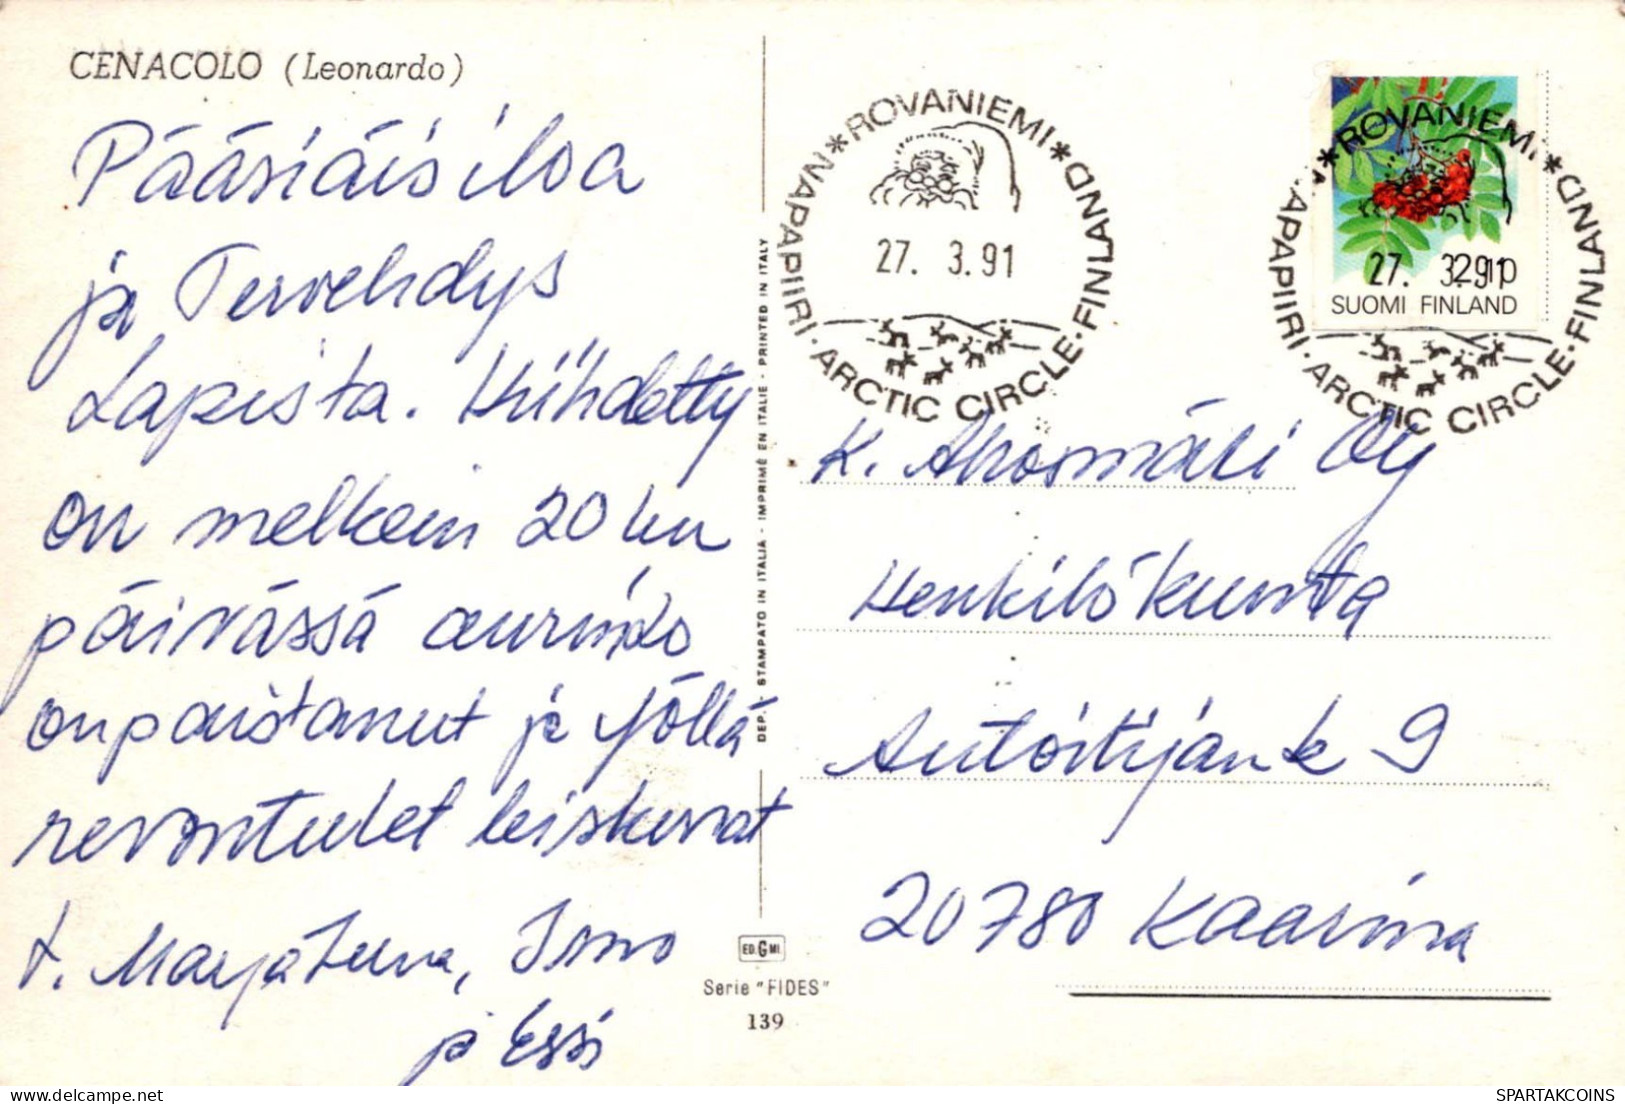 CENACOLO (Leonardo)
Pääsiäisiloa
ja Tervehdys
Lapista.
on melkein 20
päivässä aurinko
on paistanut ja yöllä
revontulet leiskuvat
t. Marjatuva, Ismo
ja Essi
DEP. - STAMPATO IN ITALIA - IMPRIMÉ EN ITALIE - PRINTED IN ITALY
ED.G.MI.
Serie "FIDES"
139
*ROVANIEMI*
NAPAPIIRI · ARCTIC CIRCLE · FINLAND
27. 3.91
*ROVANIEMI*
NAPAPIIRI · ARCTIC CIRCLE · FINLAND
27. 3.91
SUOMI FINLAND
K. Ahosmäki Oy
Henkilökunta
Autoilijank 9
20780 Kaarina
SPARTAKCOINS